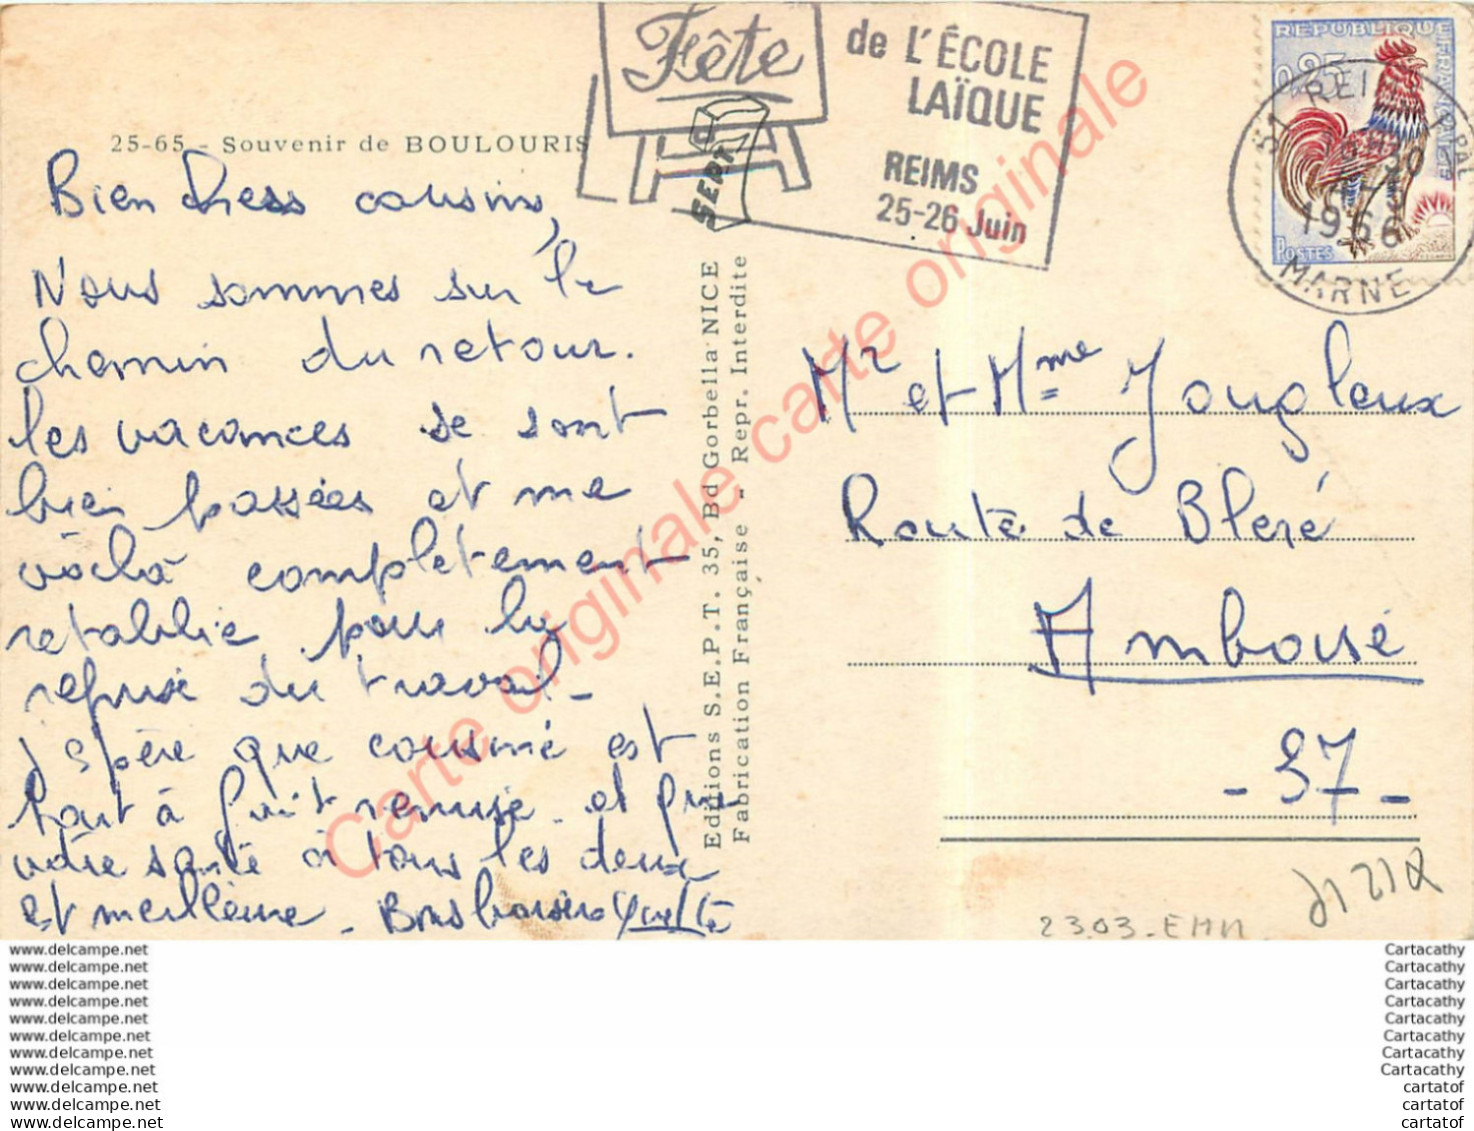 25-65 - Souvenir de BOULOURIS
Bien chers cousins,
Nous sommes sur le
chemin du retour.
les vacances se sont
bien passées et me
voilà complètement
retablie pour la
reprise du travail_
J'espère que cousine est
tout à fait remise et que
votre santé à tous les deux
est meilleure_ Bons baisers
Editions S.E.P.T. 35, Bd Gorbella NICE
Fabrication Française - Repr. Interdite
SEPT
Fête
de L'ÉCOLE
LAÏQUE
REIMS
25-26 Juin
RÉPUBLIQUE FRANÇAISE
0,25
POSTES
51 REIMS PPAL
1966
MARNE
Mr et Mme Jougleux
Route de Bleré
Amboise
- 37 -
2303-EMN
Carte originale carte originale carte originale
www.delcampe.net
www.delcampe.net
www.delcampe.net
www.delcampe.net
www.delcampe.net
www.delcampe.net
www.delcampe.net
www.delcampe.net
www.delcampe.net
www.delcampe.net
www.delcampe.net
Cartacathy
Cartacathy
Cartacathy
Cartacathy
Cartacathy
Cartacathy
Cartacathy
Cartacathy
cartatof
cartatof
cartatof